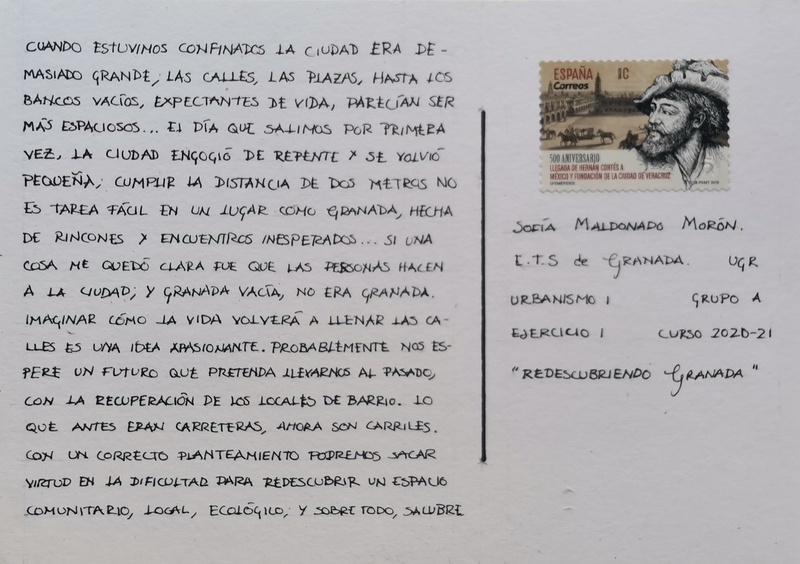 CUANDO ESTUVIMOS CONFINADOS LA CIUDAD ERA DE-
MASIADO GRANDE, LAS CALLES, LAS PLAZAS, HASTA LOS
BANCOS VACÍOS, EXPECTANTES DE VIDA, PARECÍAN SER
MÁS ESPACIOSOS... EL DÍA QUE SALIMOS POR PRIMERA
VEZ, LA CIUDAD ENGOGIÓ DE REPENTE Y SE VOLVIÓ
PEQUEÑA, CUMPLIR LA DISTANCIA DE DOS METROS NO
ES TAREA FÁCIL EN UN LUGAR COMO GRANADA, HECHA
DE RINCONES Y ENCUENTROS INESPERADOS... SI UNA
COSA ME QUEDÓ CLARA FUE QUE LAS PERSONAS HACEN
A LA CIUDAD; Y GRANADA VACÍA, NO ERA GRANADA.
IMAGINAR CÓMO LA VIDA VOLVERÁ A LLENAR LAS CA-
LLES ES UNA IDEA APASIONANTE. PROBABLEMENTE NOS ES-
PERE UN FUTURO QUE PRETENDA LLEVARNOS AL PASADO,
CON LA RECUPERACIÓN DE LOS LOCALES DE BARRIO. LO
QUE ANTES ERAN CARRETERAS, AHORA SON CARRILES.
CON UN CORRECTO PLANTEAMIENTO PODREMOS SACAR
VIRTUD EN LA DIFICULTAD PARA REDESCUBRIR UN ESPACIO
COMUNITARIO, LOCAL, ECOLÓGICO, Y SOBRE TODO, SALUBRE
ESPAÑA C
Correos
500 ANIVERSARIO
LLEGADA DE HERNÁN CORTÉS A
MÉXICO Y FUNDACIÓN DE LA CIUDAD DE VERACRUZ
SOFÍA MALDONADO MORÓN.
E.T.S de GRANADA. UGR
URBANISMO 1 GRUPO A
EJERCICIO 1 CURSO 2020-21
"REDESCUBRIENDO GRANADA"